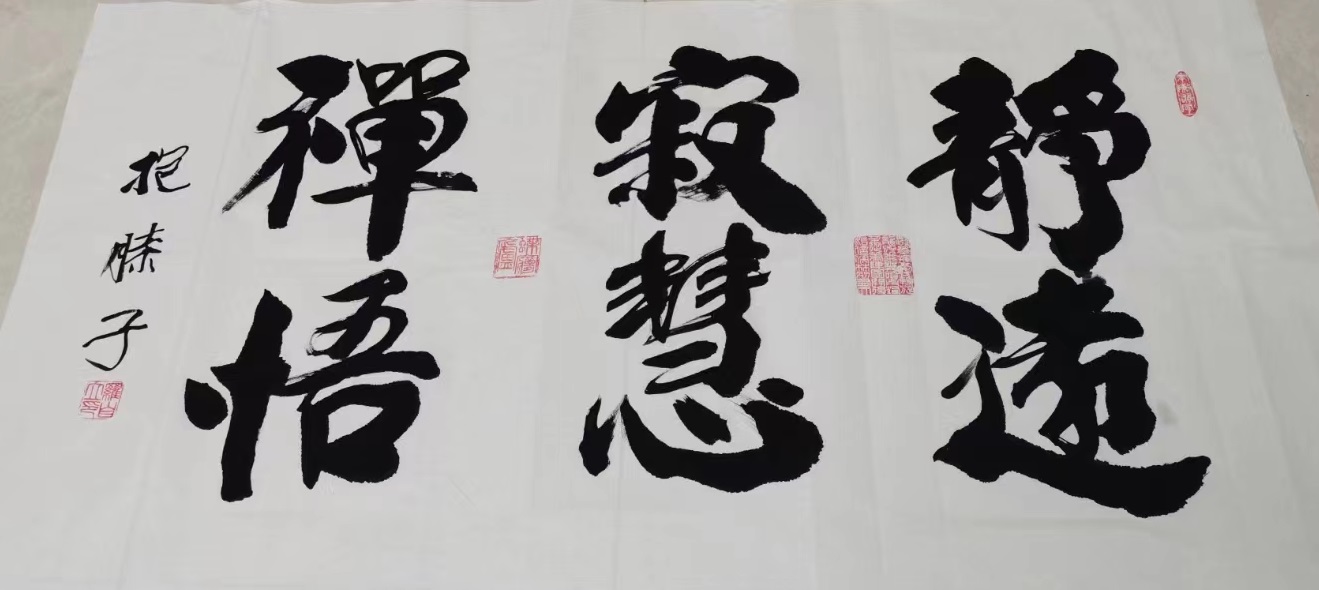 靜遠
寂慧
禪悟
抱膝子